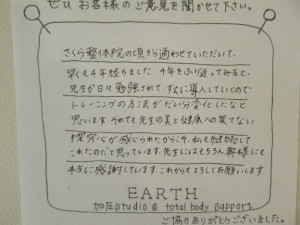 ぜひ お客様の ご意見を 聞かせて下さい。
さくら整体院の頃から通わせていただいて、
早くも4年経ちました 4年をふり返ってみると、
先生が日々勉強されて、すぐに導入していくので
トレーニングの方法がだいぶ変化したなと
思います それでも先生の美と健康への果てない
探究心が感じられたからこそ、私も継続して
これたのだと思っています。先生にはもちろん奥様にも
本当に感謝しています。これからもよろしくお願いします
EARTH
加圧studio & total body support
ご協力ありがとうございました。